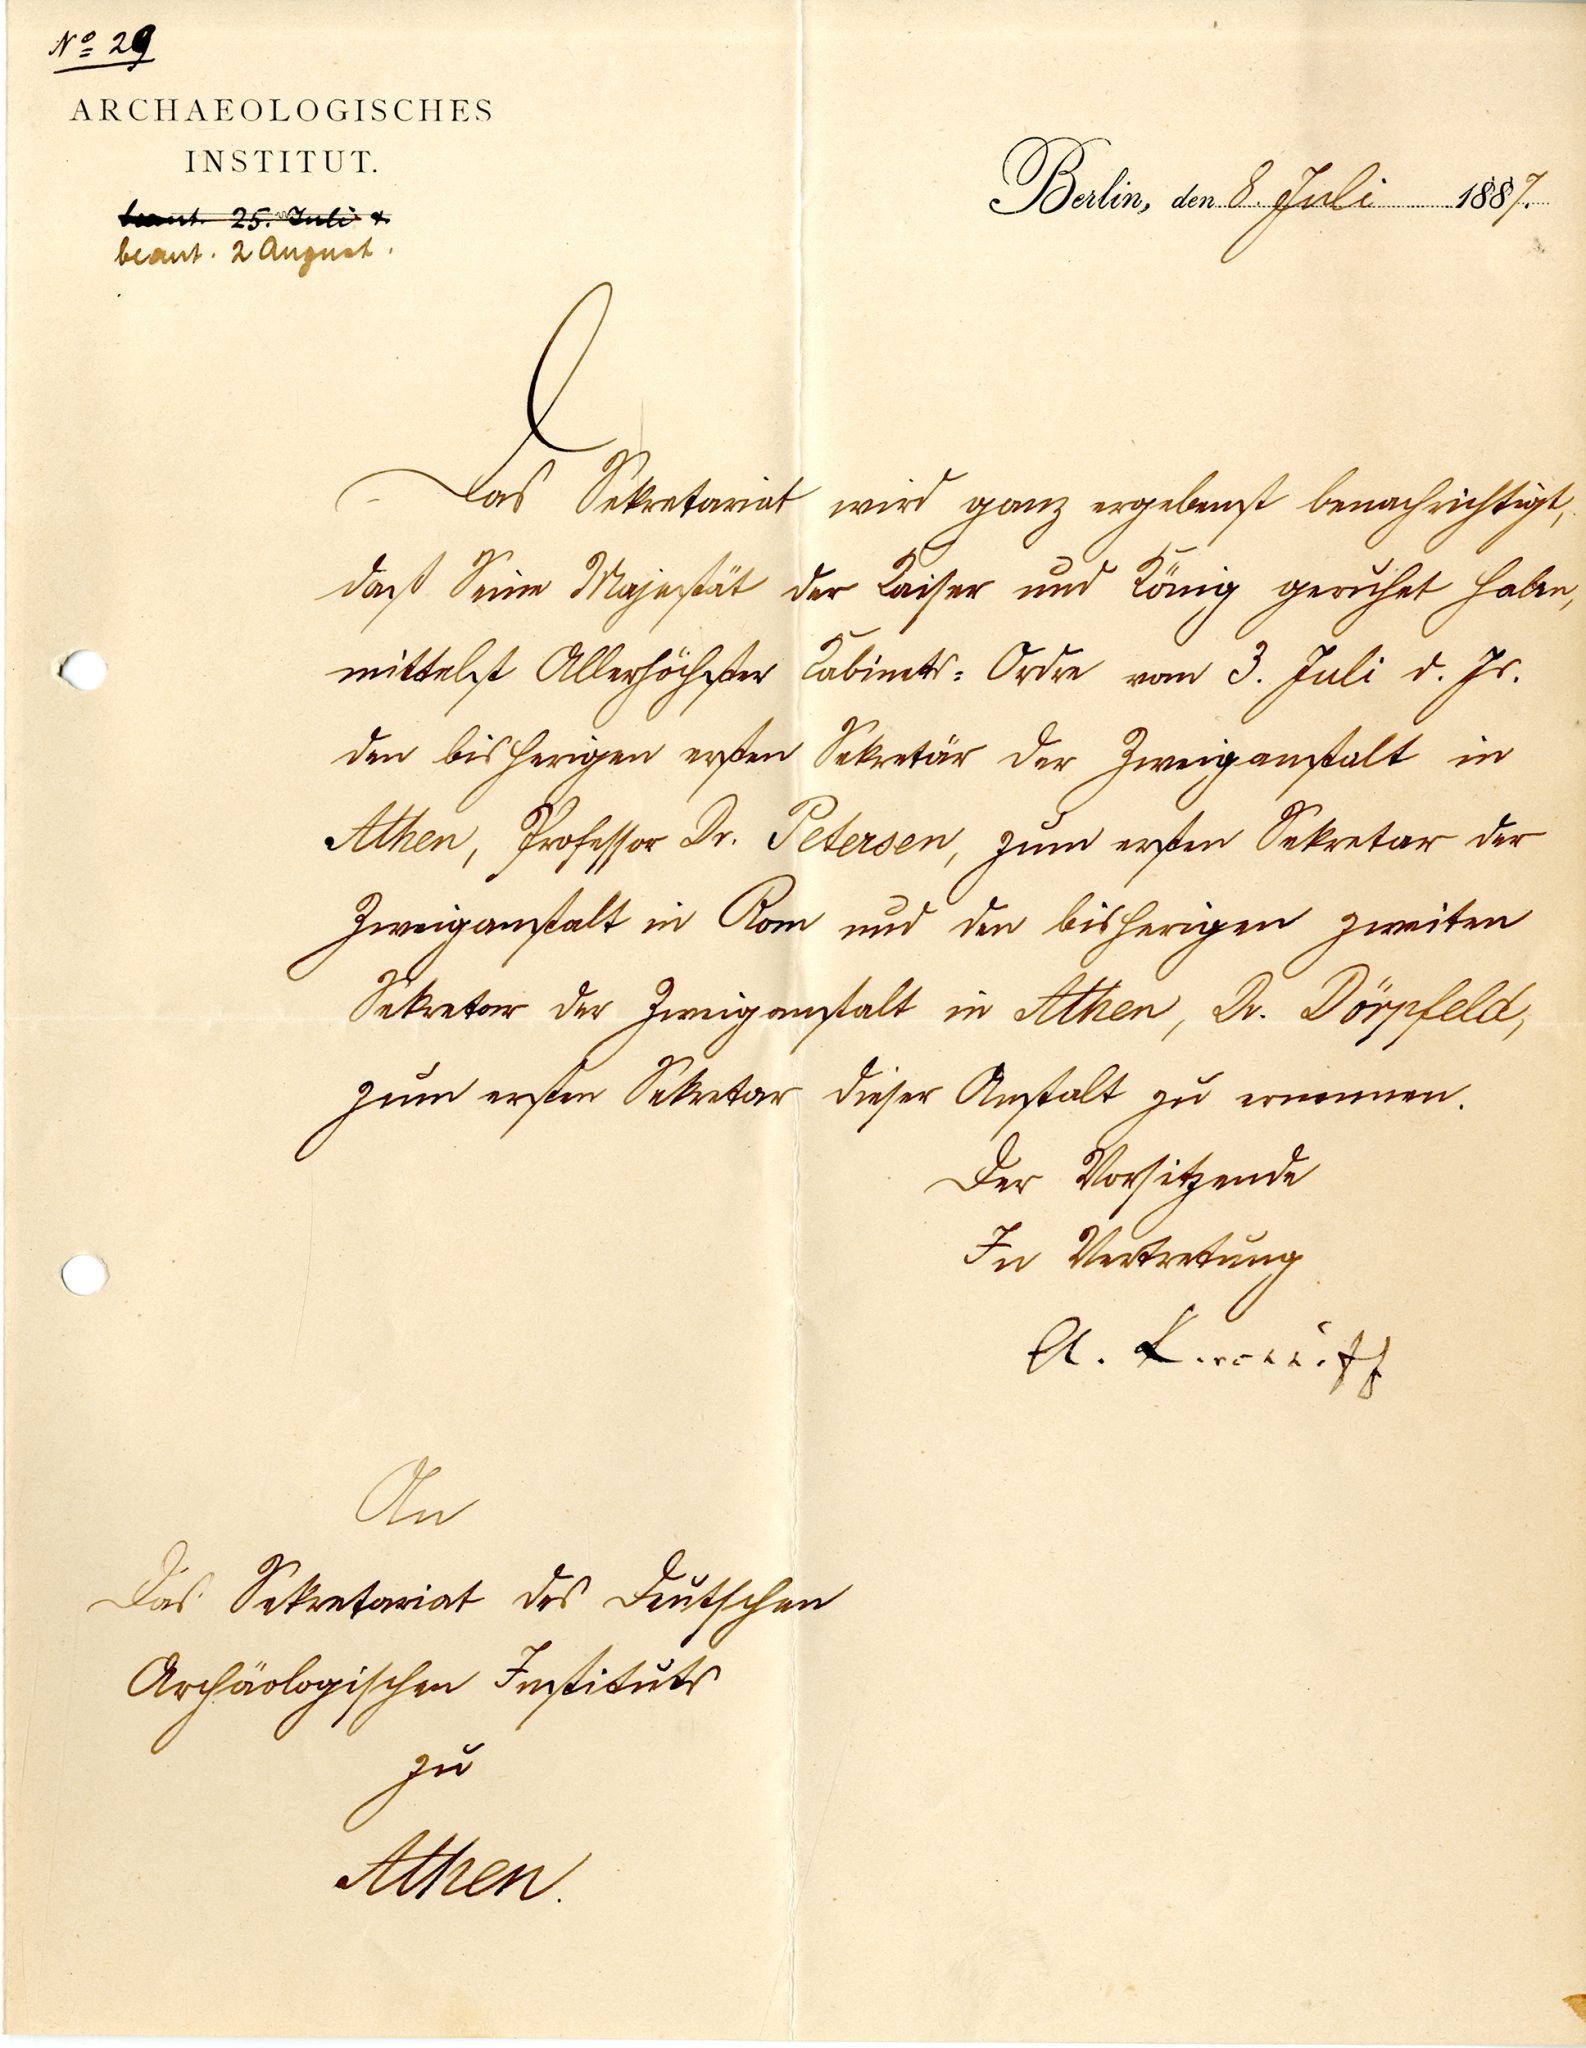 Nº 29
ARCHAEOLOGISCHES
INSTITUT.
beant. 25. Juli
beant. 2 August.
Berlin, den 8. Juli 1887.
Das Sekretariat wird ganz ergebenst benachrichtigt,
daß Seine Majestät der Kaiser und König geruhet haben,
mittelst Allerhöchster Kabinets-Ordre vom 3. Juli d. Js.
den bisherigen ersten Sekretär der Zweiganstalt in
Athen, Professor Dr. Petersen, zum ersten Sekretar der
Zweiganstalt in Rom und den bisherigen zweiten
Sekretar der Zweiganstalt in Athen, Dr. Dörpfeld,
zum ersten Sekretar dieser Anstalt zu ernennen.
Der Vorsitzende
In Vertretung
A. Kirchhoff
An
Das Sekretariat des Deutschen
Archäologischen Instituts
zu
Athen.